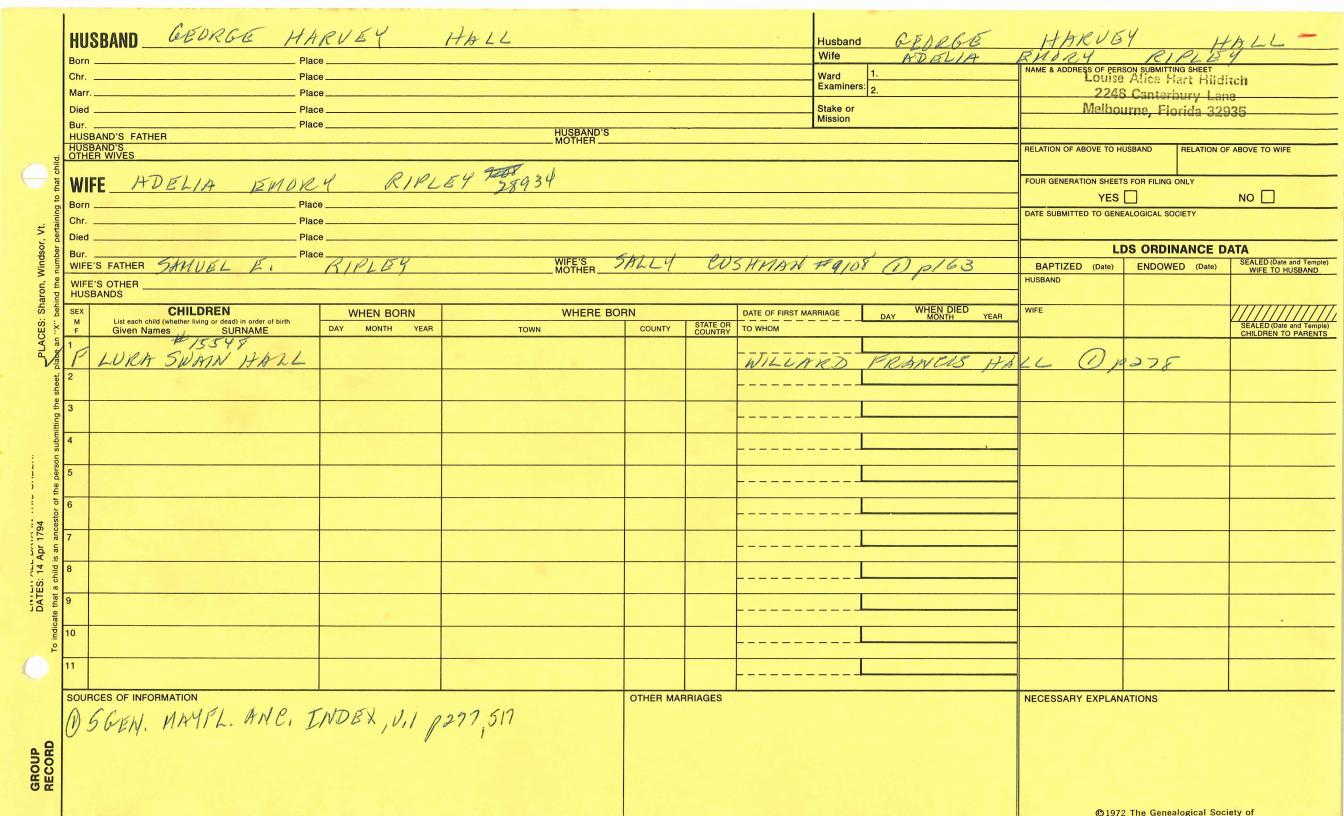 HUSBAND GEORGE HARVEY HALL
Born Place
Chr. Place
Marr. Place
Died Place
Bur. Place
HUSBAND'S FATHER HUSBAND'S MOTHER
HUSBAND'S OTHER WIVES
Husband GEORGE HARVEY HALL
Wife ADELIA EMORY RIPLEY
Ward Examiners: 1.
2.
Stake or Mission
NAME & ADDRESS OF PERSON SUBMITTING SHEET
Louise Alice Hart Hilditch
2246 Canterbury Lane
Melbourne, Florida 32935
RELATION OF ABOVE TO HUSBAND RELATION OF ABOVE TO WIFE
FOUR GENERATION SHEETS FOR FILING ONLY
YES NO
DATE SUBMITTED TO GENEALOGICAL SOCIETY
WIFE ADELIA EMORY RIPLEY 28934
Born Place
Chr. Place
Died Place
Bur. Place
WIFE'S FATHER SAMUEL E. RIPLEY WIFE'S MOTHER SALLY CUSHMAN #9108 ① p163
WIFE'S OTHER HUSBANDS
LDS ORDINANCE DATA
BAPTIZED (Date) ENDOWED (Date) SEALED (Date and Temple) WIFE TO HUSBAND
HUSBAND
WIFE
SEALED (Date and Temple) CHILDREN TO PARENTS
SEX M F
CHILDREN
List each child (whether living or dead) in order of birth
Given Names SURNAME
WHEN BORN
DAY MONTH YEAR
WHERE BORN
TOWN COUNTY STATE OR COUNTRY
DATE OF FIRST MARRIAGE
TO WHOM
WHEN DIED
DAY MONTH YEAR
#15548
1 F LURA SWAIN HALL WILLARD FRANCIS HALL ① p278
2
3
4
5
6
7
8
9
10
11
SOURCES OF INFORMATION
① 5GEN. MAYFL. ANC. INDEX, V.1 p277,517
OTHER MARRIAGES
NECESSARY EXPLANATIONS
©1972 The Genealogical Society of
PLACES: Sharon, Windsor, Vt.
DATES: 14 Apr 1794
To indicate that a child is an ancestor of the person submitting the sheet, place an "X" behind the number pertaining to that child.
GROUP RECORD